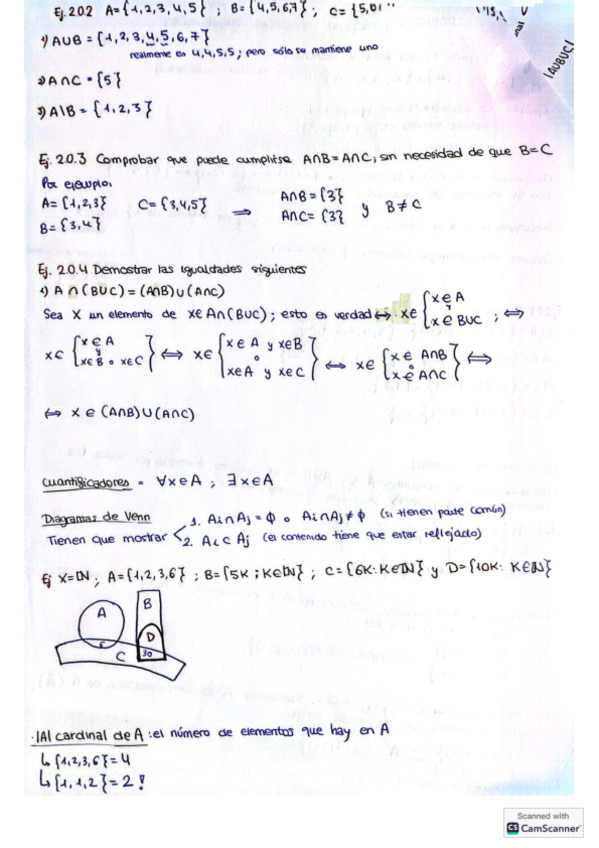 Ej. 2.0.2 A={1,2,3,4,5} ; B={4,5,6,7} ; C={5,
1) A∪B = {1,2,3,4,5,6,7}
realmente es 4,4,5,5; pero sólo se mantiene uno
|A∪B∪C|
2) A∩C = {5}
3) A\B = {1,2,3}
Ej. 2.0.3 Comprobar que puede cumplirse A∩B=A∩C, sin necesidad de que B=C
Por ejemplo:
A={1,2,3} C={3,4,5} ⇒ A∩B={3} y B≠C
B={3,4} A∩C={3}
Ej. 2.0.4 Demostrar las igualdades siguientes
1) A∩(B∪C)=(A∩B)∪(A∩C)
Sea X un elemento de x∈A∩(B∪C); esto es verdad ⇔ x∈ {x∈A y x∈B∪C ; ⇔
x∈ {x∈A y x∈B o x∈C} ⇔ x∈ {x∈A y x∈B o x∈A y x∈C} ⇔ x∈ {x∈A∩B o x∈A∩C} ⇔
⇔ x∈(A∩B)∪(A∩C)
Cuantificadores = ∀x∈A ; ∃x∈A
Diagramas de Venn 1. Ai∩Aj=Φ o Ai∩Aj≠Φ (si tienen parte común)
Tienen que mostrar 2. Ai⊂Aj (el contenido tiene que estar reflejado)
Ej X=ℕ ; A={1,2,3,6} ; B={5K ; K∈ℕ} ; C={6K: K∈ℕ} y D={10K: K∈ℕ}
A B
D
6 C 30
·|A| cardinal de A: el número de elementos que hay en A
↳{1,2,3,6}=4
↳{1,1,2}=2!
Scanned with
CS CamScanner